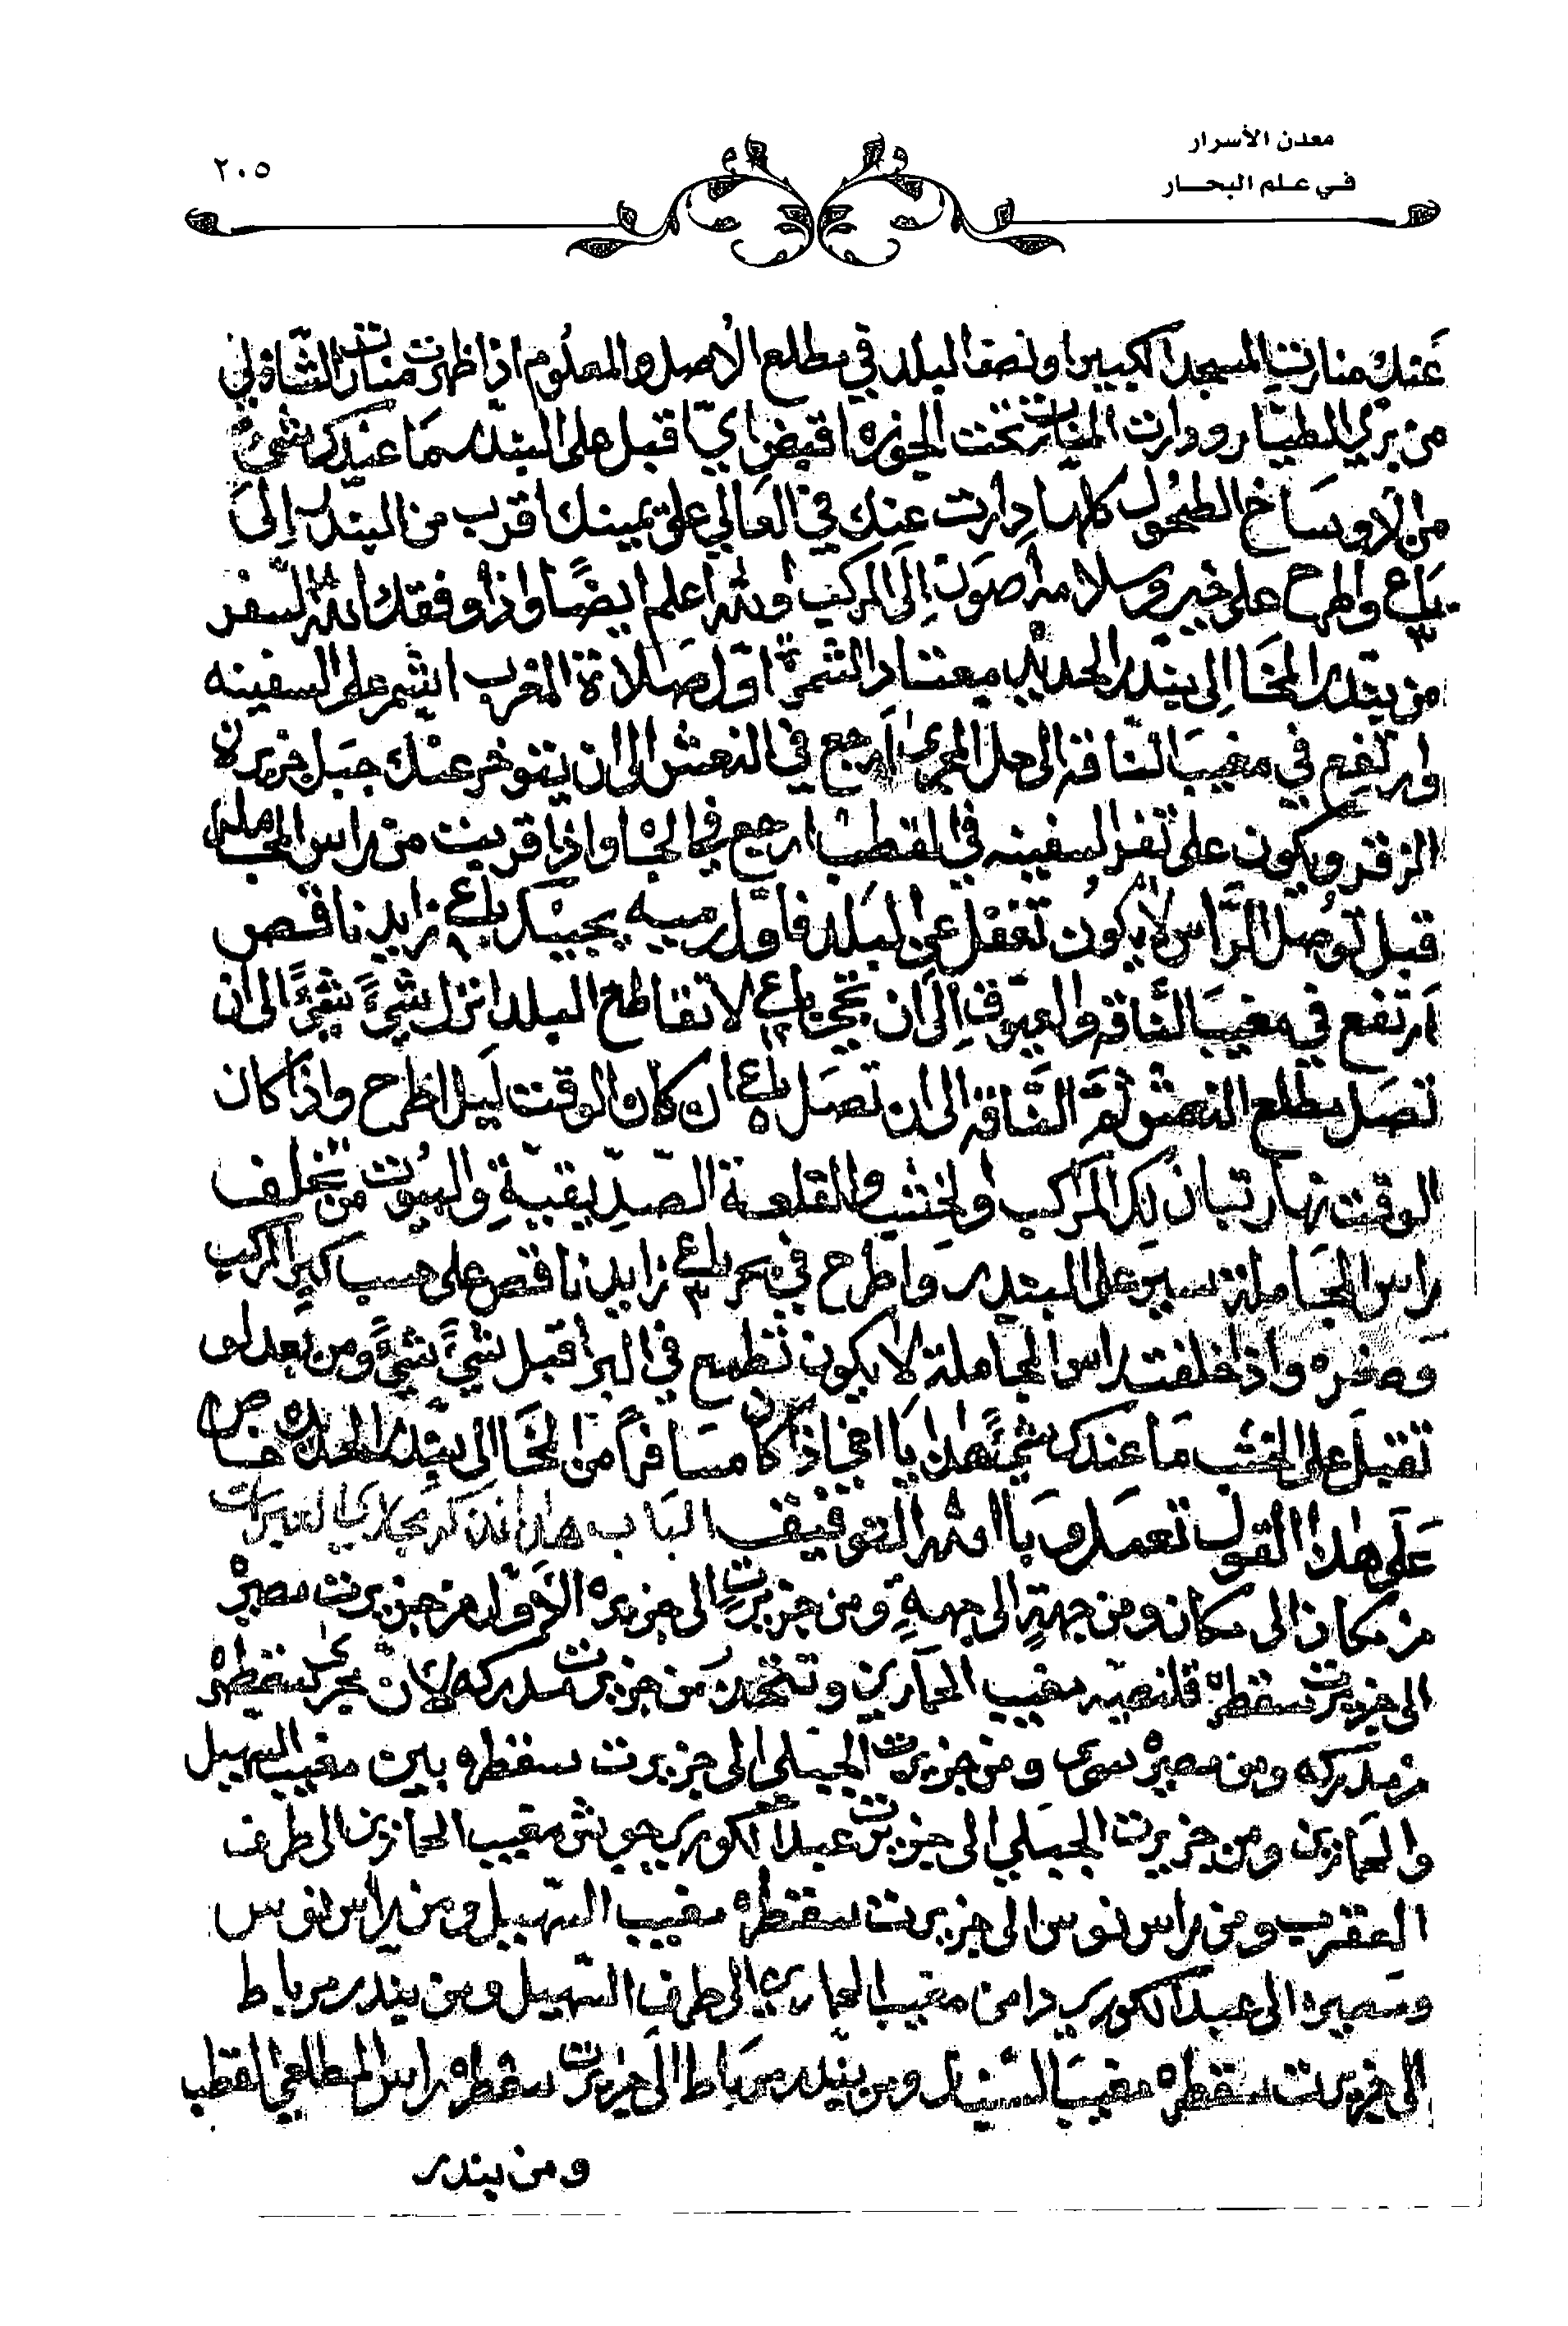 معدن الأسرار
في علم البحار
٢٠٥
عنك منارت المسجد الكبير او نصف البلد في مطلع الاصل والمعلوم اذا ظهرت منارت الشاذلي
من بري الطيار ودارت المنارت تحت الجوزه اقبض اي اقبل على البندر ما عندك شيء
من الاوساخ الطحول كلها دارت عنك في العالي على يمينك اقرب من البندر إلى
باع ٣ واطرح على خير وسلامه اصوت إلى المركب والله اعلم ايضًا واذا وفقك الله السفر
من بندر المخا الى بندر الحديد معتاد الشمرة اول صلاة المغرب اشمر على السفينه
وارتفع في مغيب الناقه الى حل المجرى ارجع في النعش الى ان يتوخر عنك جبل جزيرة
الزقر ويكون على تفر السفينه في القطب ارجع في الجا واذا قربت من راس المجامله
قبل توصل الراس لا يكون تغفل عن البلد فاول رميه يجيبك باع ٩ زايد ناقص
ارتفع في مغيب الناقه والعيوق إلى ان تجي باع ١٢ لا تقاطع البلد انزل شيءً شيءً الى ان
تصل مطلع النعش ثم الناقه الى ان تصل باع ٥ ان كان الوقت ليل اطرح واذا كان
الوقت نهار تبان لك المراكب والخشب والقلعة الصديقية والبيوت من تخلف
راس المجاملة سير على البندر واطرح في بحر باع ٣ زايد ناقص على حسب كبر المركب
وصغره واذا خلفت راس المجاملة لا يكون تطمع في البر اقبل شيءً شيءً ومن بعد لو
تقبل على الخشب ما عندك شيء هذا يا اخي اذا كان مسافرًا من المخا الى بندر الحديده خاص
على هذا القول تعمل وبا الله التوفيق الباب هذا نذكر مجاري العبرات
من مكان الى مكان ومن جهةٍ الى جهةٍ ومن جزيرتٍ الى جزيره الاول من جزيرت مصيره
الى جزيرت سقطره قلنصيه مغيب الحمارين وتتحذر من جزيرت مدركه لان مجرى سقطره
من مدركه ومن مصيره سوى ومن جزيرت الجبلي الى جزيرت سقطره بين مغيب السهيل
والحمارين ومن جزيرت الجبلي الى جزيرت عبد الكوري جوش مغيب الحمارين الى طرف
العقرب ومن راس نوس الى جزيرت سقطره مغيب السهيل ومن راس نوس
ومسيره الى عبد الكوري دامن مغيب الحماري الى طرف السهيل ومن بندر مرباط
الى جزيرت سقطره مغيب السندل ومن بندر مرباط الى جزيرت سقطره راس المطلعي القطب
ومن بندر